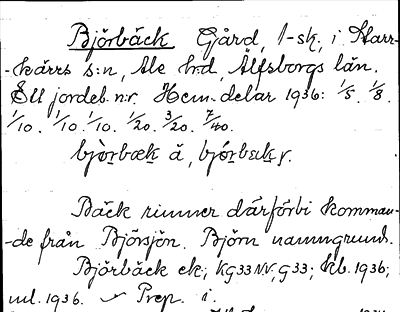 Björbäck Gård, 1-sk, i Starr-
-kärrs s:n, Ale h:d, Älfsborgs län.
Ett jordeb. n:r. Hem. delar 1936: 1/5. 1/8.
1/10. 1/10. 1/10. 1/20. 3/20. 7/40.
Bäck rinner därförbi komman-
-de från Björsjön. Björn namngrund.
Björbäck ek; KG33NV, G33; kb. 1936;
ml. 1936. Prep. i.